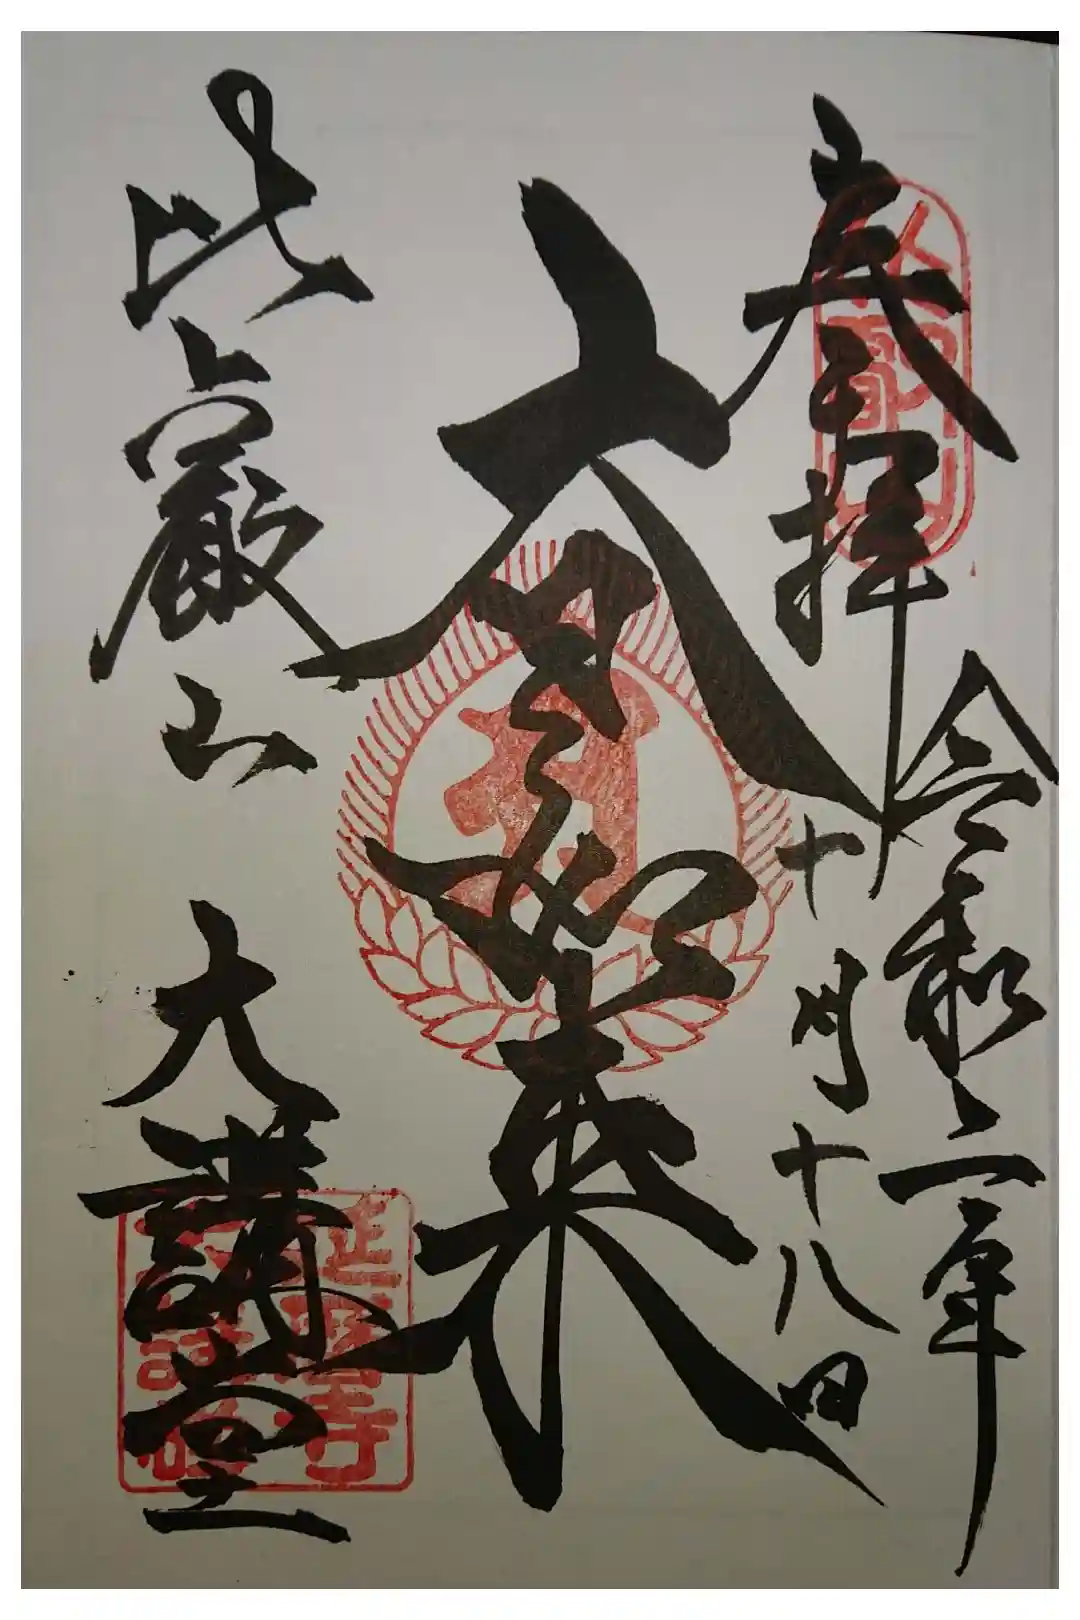 奉拝
令和二年
十月十八日
大日如来
比叡山
大講堂
延暦寺